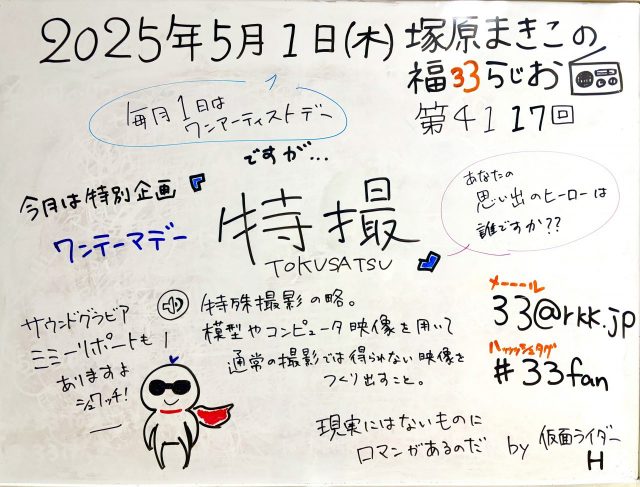 2025年5月1日(木) 塚原まきこの
福33らじお
第4117回
毎月1日は
ワンアーティストデー
ですが…
今月は特別企画
ワンテーマデー
特撮
TOKUSATSU
あなたの
思い出のヒーローは
誰ですか??
サウンドグラビア
ミミーリポートも!
ありますよ
シュワッチ!
特殊撮影の略。
模型やコンピュータ映像を用いて
通常の撮影では得られない映像を
つくり出すこと。
メーーール
33@rkk.jp
ハッッッシュタグ
#33fan
現実にはないものに
ロマンがあるのだ
by 仮面ライダー
H